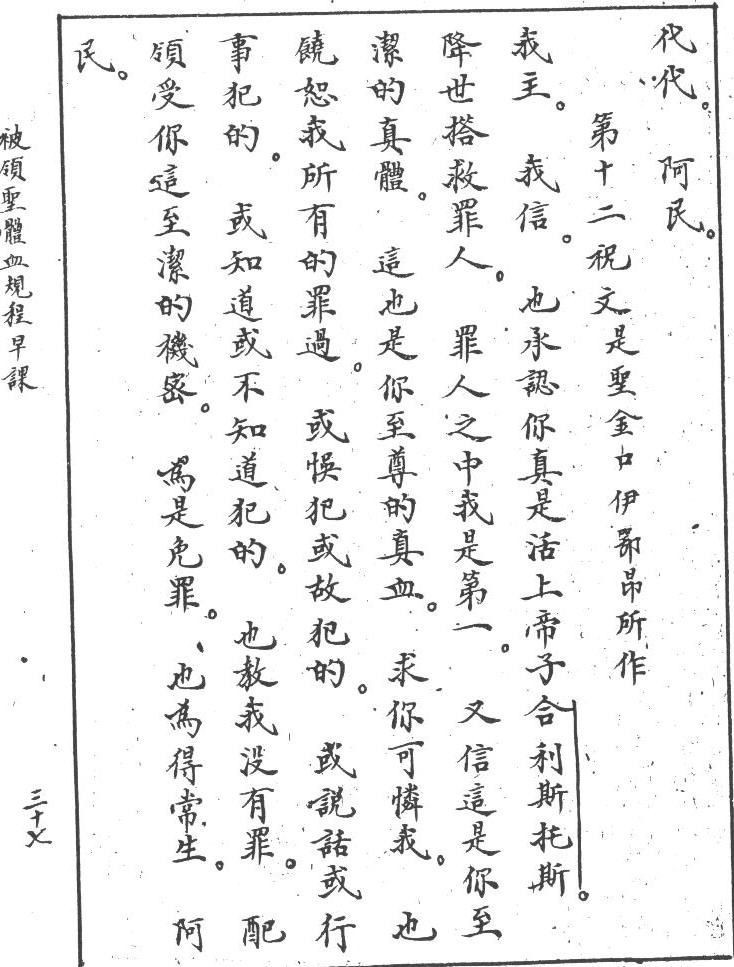 代代。 阿民。
第十二祝文是聖金口伊鄂昂所作
我主。 我信。 也承認你真是活上帝子合利斯托斯。
降世搭救罪人。 罪人之中我是第一。 又信這是你至
潔的真體。 這也是你至尊的真血。 求你可憐我。 也
饒恕我所有的罪過。 或悞犯或故犯的。 或說話或行
事犯的。 或知道或不知道犯的。 也教我没有罪。 配
領受你這至潔的機密。 為是免罪。 也為得常生。 阿
民。
被領聖體血規程早課
三十七